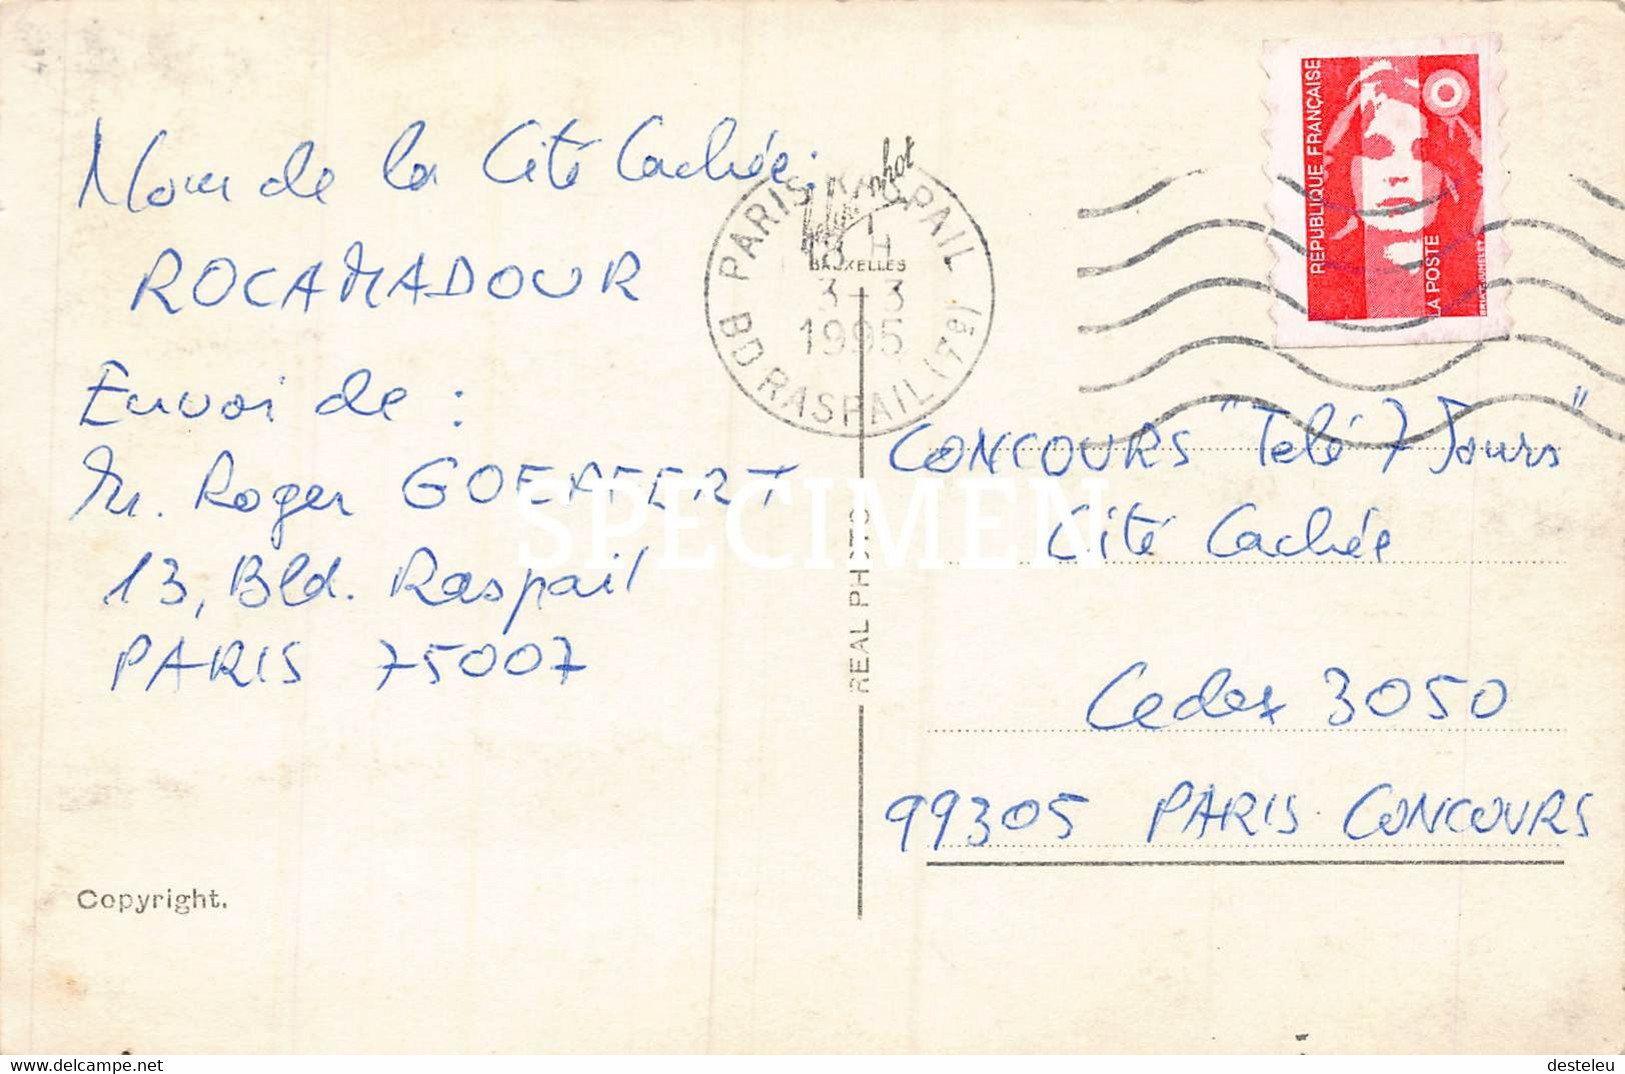 Nom de la Cité Cachée:
ROCAMADOUR
Envoi de :
M. Roger GOEPFERT
13, Bld. Raspail
PARIS 75007
Copyright.
phot
BRUXELLES
PARIS RASPAIL
18 H
3-3
1995
BD RASPAIL (7è)
REAL PHOTO
REPUBLIQUE FRANÇAISE
LA POSTE
CONCOURS "Télé 7 Jours"
Cité Cachée
Cedex 3050
99305 PARIS CONCOURS
SPECIMEN
www.delcampe.net
desteleu